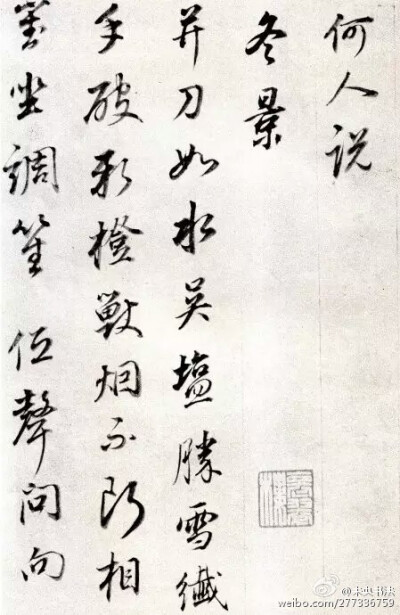 何人说
冬景
并刀如水吴塩勝雪纖
手破新橙獸烟不断相
對坐調笙低聲问向
weibo.com/277336759